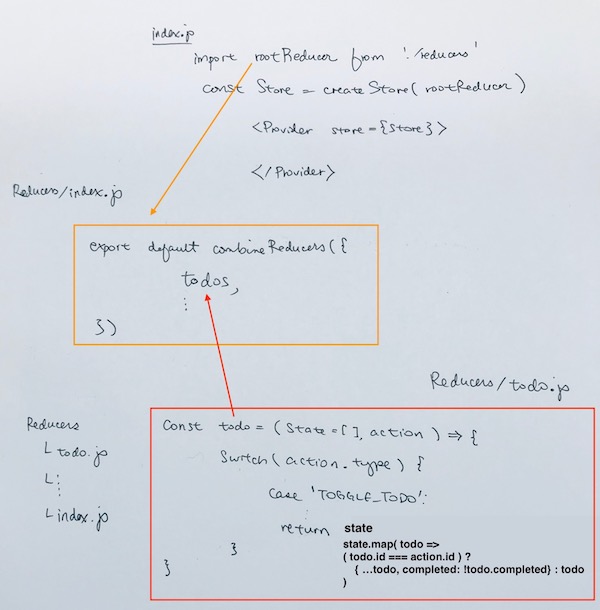 index.js
import rootReducer from './reducers'
const Store = createStore( rootReducer )
<Provider store={store}>
</Provider>
Reducers/index.js
export default combineReducers({
todos,
⋮
})
Reducers/todo.js
Const todo = ( State = [ ], action ) => {
Switch( action.type ) {
case 'TOGGLE_TODO':
return state
state.map( todo =>
( todo.id === action.id ) ?
{ ...todo, completed: !todo.completed} : todo
)
}
}
Reducers
└ todo.js
└ ⋮
└ index.js